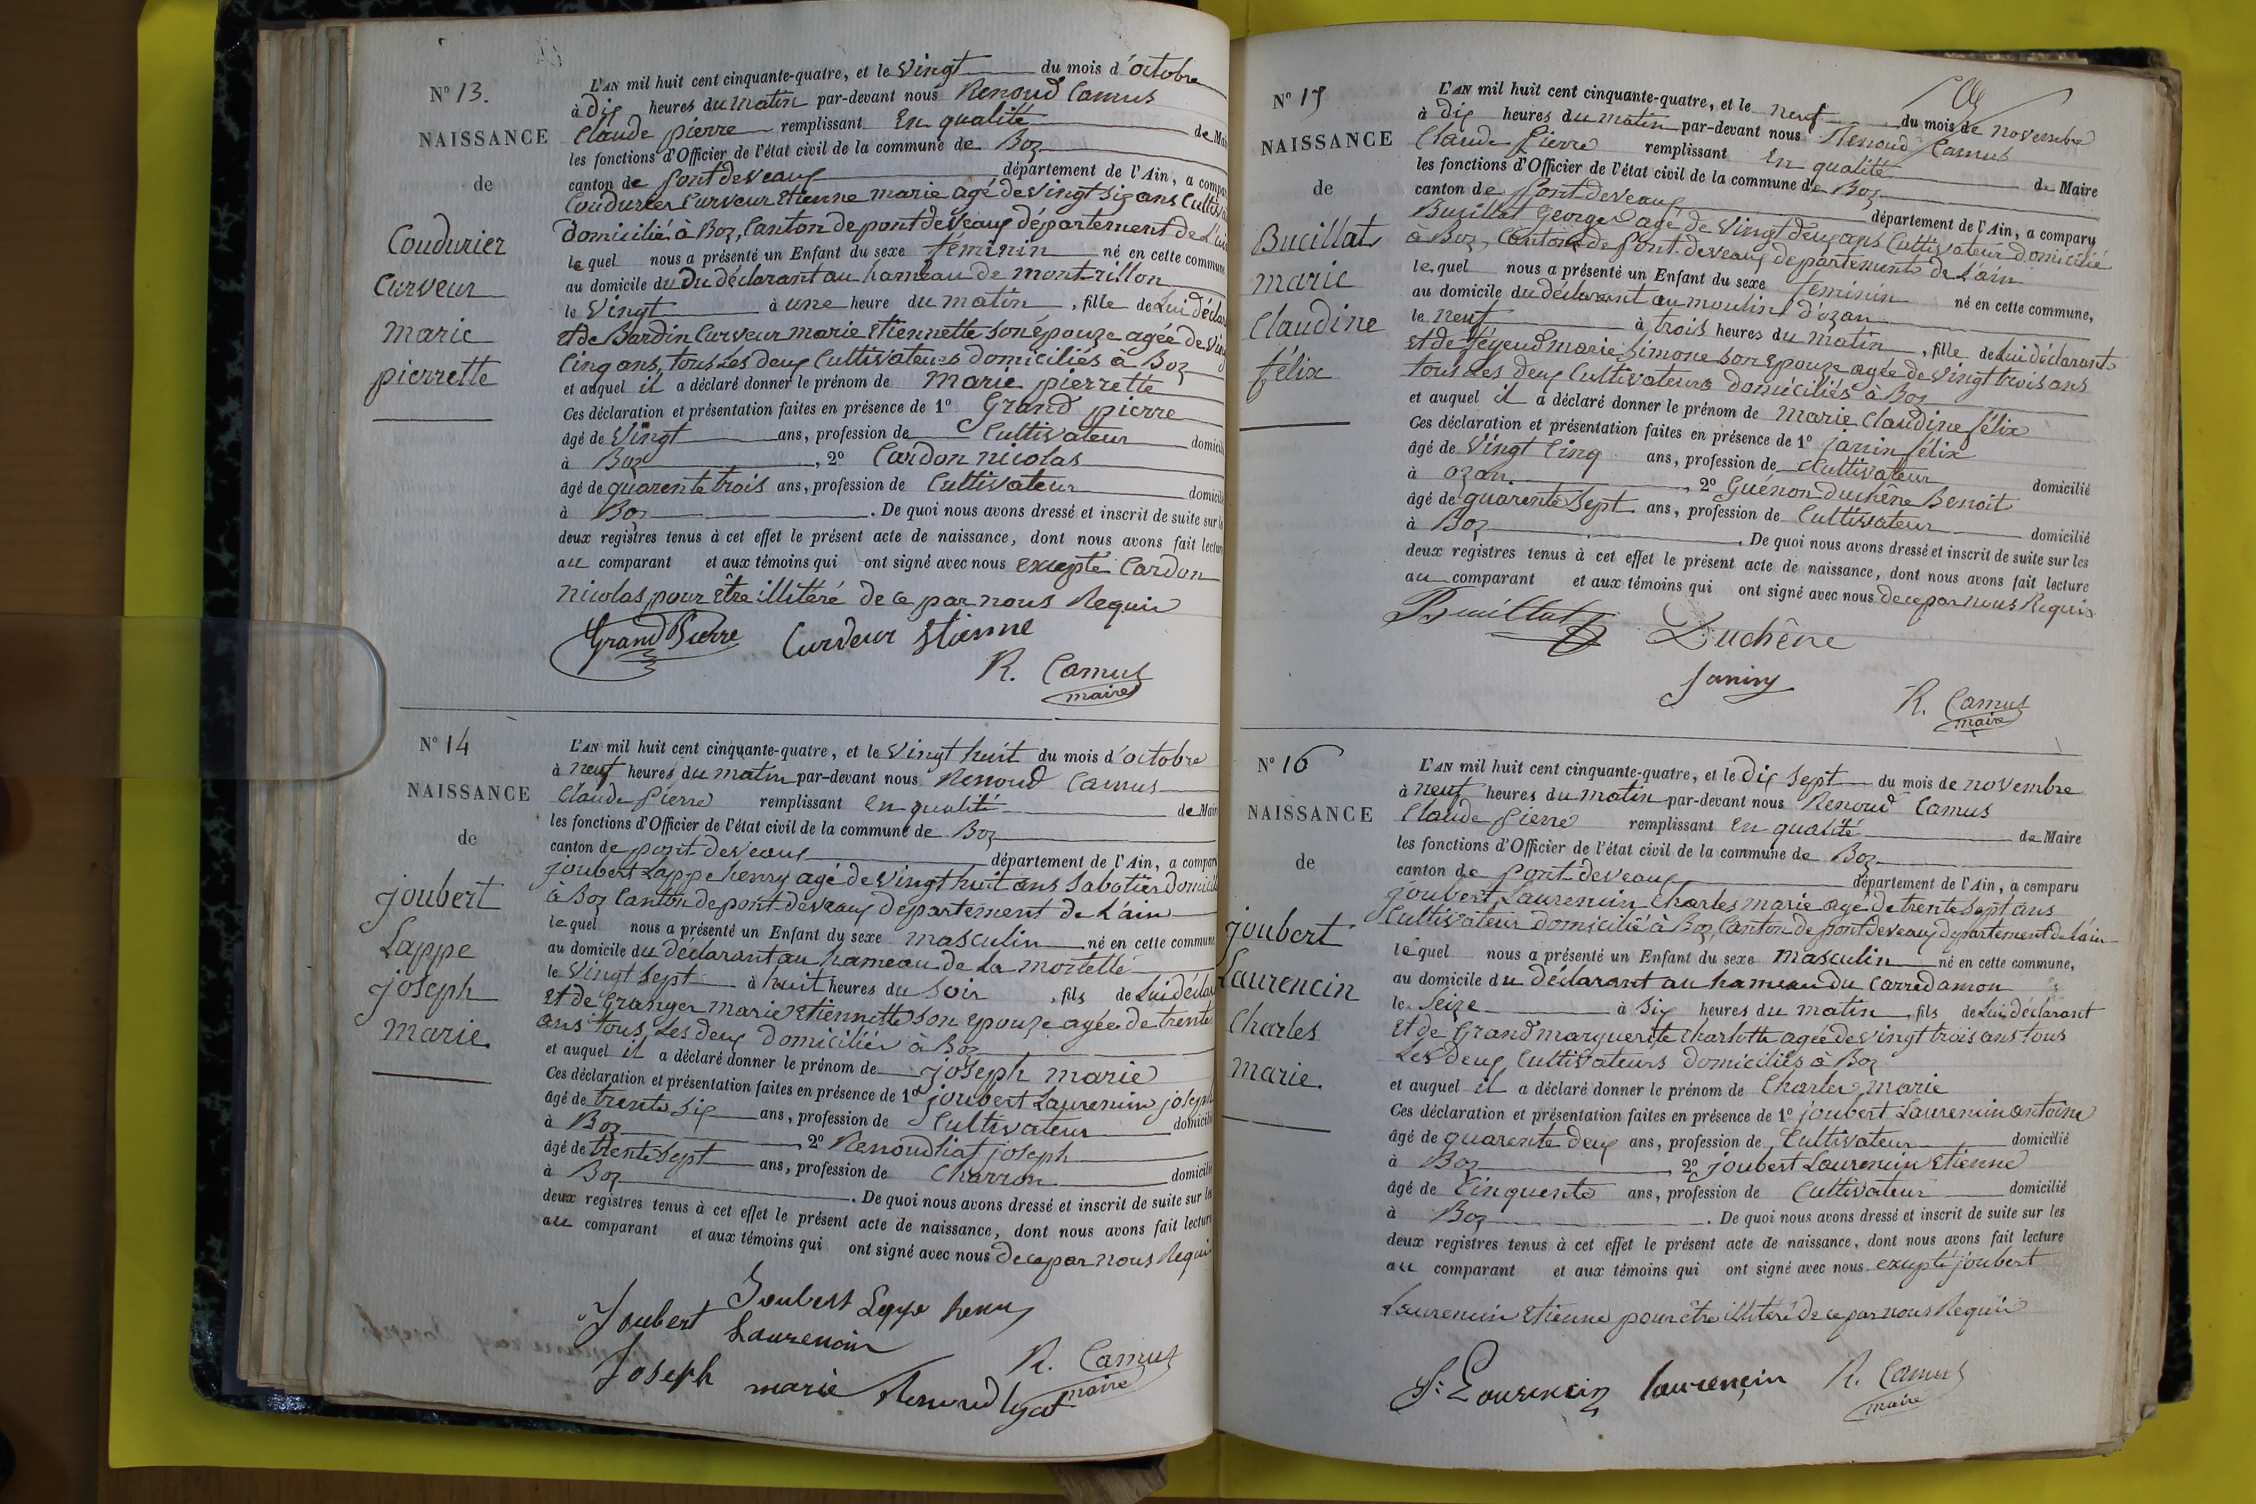 N° 13.
NAISSANCE
de
Coudurier
Curveur
marie
pierrette
L'AN mil huit cent cinquante-quatre, et le Vingt du mois d'octobre
à dix heures du matin par-devant nous Renoud Camus
Claude pierre remplissant En qualité de Mai
les fonctions d'Officier de l'état civil de la commune de Boz
canton de pont deveaux département de l'Ain, a compar
Coudurier Curveur Etienne marie agé de vingt six ans Cultiva
domicilié à Boz, Canton de pont de Veaux département de L'ain
lequel nous a présenté un Enfant du sexe féminin né en cette commune
au domicile du Du déclarant au hameau de mont-rillon
le Vingt à une heure du matin, fille de Lui déclar
et de Bardin Curveur marie Etiennette son épouze agée de Vingt
Cinq ans, tous Les deux Cultivateurs domiciliés à Boz
et auquel il a déclaré donner le prénom de Marie pierrette
Ces déclaration et présentation faites en présence de 1° Grand pierre
âgé de Vingt ans, profession de Cultivateur domicilié
à Boz, 2° Cardon nicolas
âgé de quarente trois ans, profession de Cultivateur domicilié
à Boz. De quoi nous avons dressé et inscrit de suite sur les
deux registres tenus à cet effet le présent acte de naissance, dont nous avons fait lecture
au comparant et aux témoins qui ont signé avec nous excepté Cardon
nicolas pour être illitéré de ce par nous Requis
Grand Pierre Curveur Etienne
R. Camus
maire
N° 14
NAISSANCE
de
joubert
Lappe
joseph
marie.
L'AN mil huit cent cinquante-quatre, et le Vingt huit du mois d'octobre
à neuf heures du matin par-devant nous Renoud Camus
Claude Pierre remplissant En qualité de Maire
les fonctions d'Officier de l'état civil de la commune de Boz
canton de pont deveaux département de l'Ain, a comparu
joubert Lappe henry agé de Vingt huit ans Sabotier domicilié
à Boz Canton de pont-deveaux département de L'ain
lequel nous a présenté un Enfant du sexe masculin né en cette commune
au domicile du déclarant au hameau de La mortelle
le Vingt sept à huit heures du Soir, fils de Lui déclar
et de Granger marie Etiennette son epouze agée de trente
ans tous Les deux domiciliés à Boz
et auquel il a déclaré donner le prénom de joseph marie
Ces déclaration et présentation faites en présence de 1° joubert Laurencin joseph
âgé de trente six ans, profession de Cultivateur domicilié
à Boz, 2° Renoud liat joseph
âgé de trente sept ans, profession de Charron domicilié
à Boz. De quoi nous avons dressé et inscrit de suite sur les
deux registres tenus à cet effet le présent acte de naissance, dont nous avons fait lecture
au comparant et aux témoins qui ont signé avec nous de ce par nous Requis
Joubert Lappe henry
Joubert Laurencin
Joseph marie Renoud lyat
R. Camus
maire
N° 15
NAISSANCE
de
Bucillat
marie
Claudine
félix
L'AN mil huit cent cinquante-quatre, et le neuf du mois de novembre
à dix heures du matin par-devant nous Renoud Camus
Claude Pierre remplissant En qualité de Maire
les fonctions d'Officier de l'état civil de la commune de Boz
canton de Pont-deveaux département de l'Ain, a comparu
Bucillat George agé de Vingt deux ans Cultivateur domicilié
à Boz, Canton de Pont-deveaux département de L'ain
lequel nous a présenté un Enfant du sexe féminin né en cette commune,
au domicile du déclarant au moulin d'ozan
le neuf à trois heures du matin, fille de Lui déclarant
et de féyeux marie Simone son Epouze agée de Vingt trois ans
tous Les deux Cultivateurs domiciliés à Boz
et auquel il a déclaré donner le prénom de Marie Claudine félix
Ces déclaration et présentation faites en présence de 1° janin félix
âgé de Vingt Cinq ans, profession de Cultivateur domicilié
à ozan, 2° Guénon-duchêne Benoit
âgé de quarente Sept ans, profession de Cultivateur domicilié
à Boz. De quoi nous avons dressé et inscrit de suite sur les
deux registres tenus à cet effet le présent acte de naissance, dont nous avons fait lecture
au comparant et aux témoins qui ont signé avec nous de ce par nous Requis
Bucillat Duchêne
Janin
R. Camus
maire
N° 16
NAISSANCE
de
joubert
Laurencin
Charles
marie.
L'AN mil huit cent cinquante-quatre, et le dix sept du mois de novembre
à neuf heures du matin par-devant nous Renoud Camus
Claude Pierre remplissant En qualité de Maire
les fonctions d'Officier de l'état civil de la commune de Boz
canton de Pont-deveaux département de l'Ain, a comparu
joubert Laurencin Charles marie agé de trente Sept ans
Cultivateur domicilié à Boz, Canton de pont deveaux département de L'ain
lequel nous a présenté un Enfant du sexe masculin né en cette commune,
au domicile du déclarant au hameau du Carré damon
le Seize à Six heures du matin, fils de Lui déclarant
et de Grand marguerite Charlotte agée de vingt trois ans tous
Les deux Cultivateurs domiciliés à Boz
et auquel il a déclaré donner le prénom de Charles marie
Ces déclaration et présentation faites en présence de 1° joubert Laurencin antoine
âgé de quarente deux ans, profession de Cultivateur domicilié
à Boz, 2° joubert Laurencin Etienne
âgé de Cinquente ans, profession de Cultivateur domicilié
à Boz. De quoi nous avons dressé et inscrit de suite sur les
deux registres tenus à cet effet le présent acte de naissance, dont nous avons fait lecture
au comparant et aux témoins qui ont signé avec nous excepté joubert
Laurencin Etienne pour être illitéré de ce par nous Requis
Laurencin laurençin R. Camus
maire